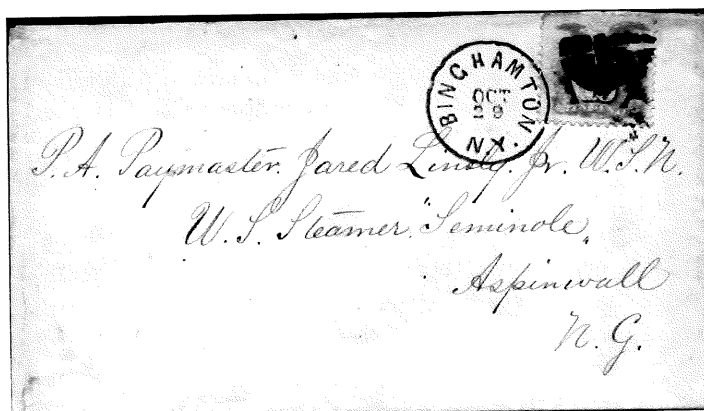 BINGHAMTON. N.Y.
OCT
29
P. A. Paymaster. Jared Linsly. Jr. U.S.N.
U. S. Steamer "Seminole"
Aspinwall
N. G.